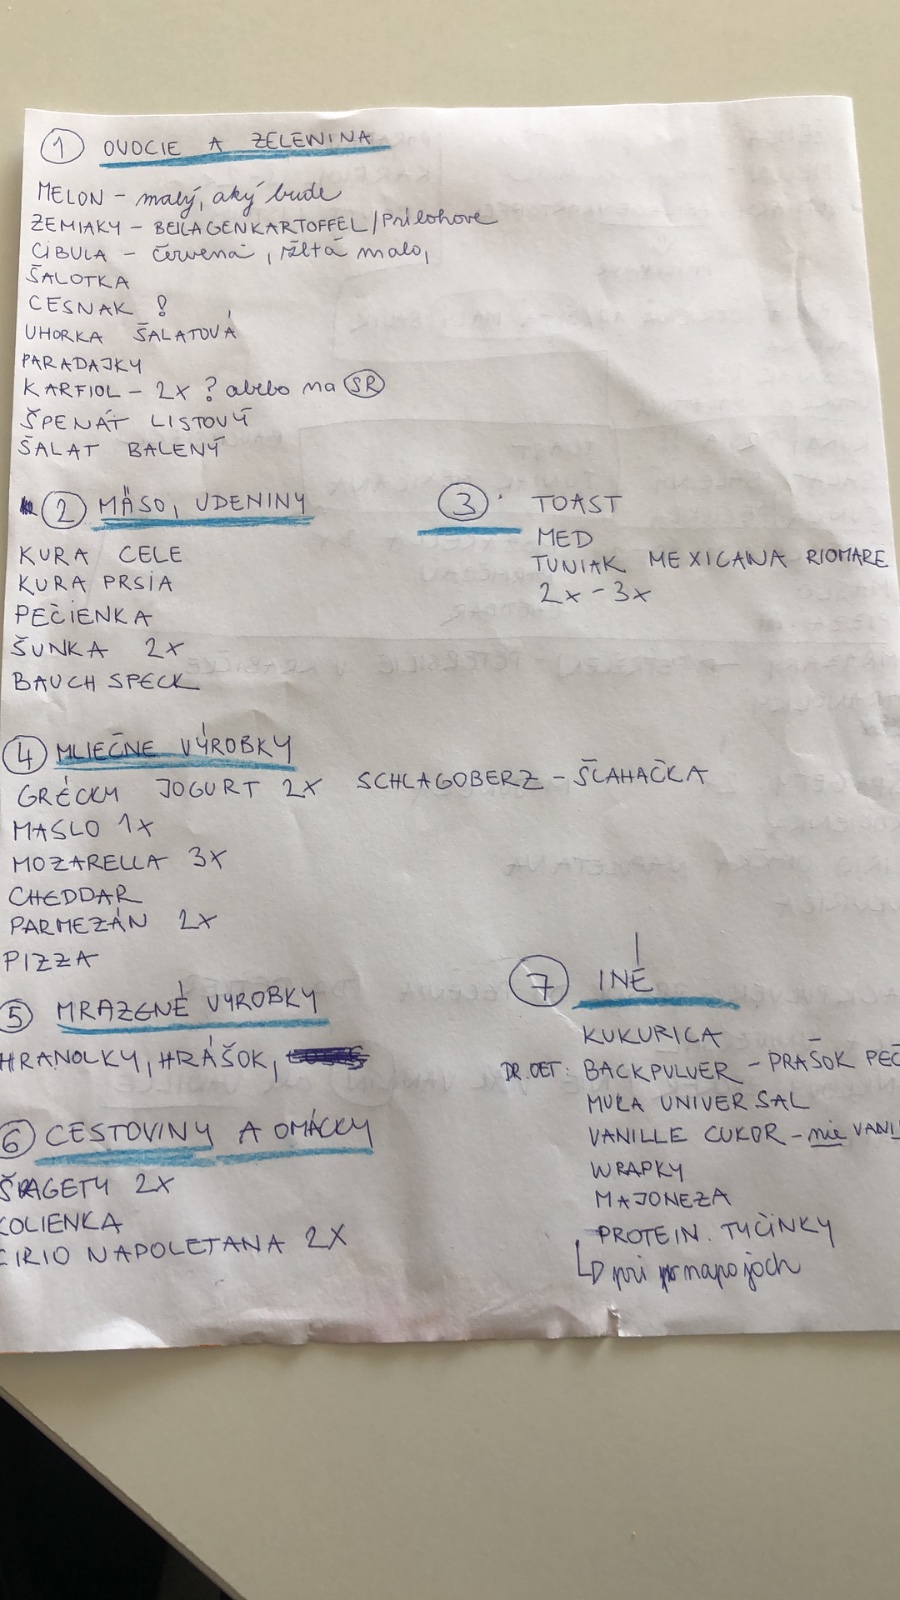 1 OVOCIE A ZELENINA
MELON - malý, aký bude
ZEMIAKY - BEILAGENKARTOFFEL/Prílohové
CIBULA - červená, žltá malo,
ŠALOTKA
CESNAK !
UHORKA ŠALATOVÁ
PARADAJKY
KARFIOL - 2x ? alebo na SR
ŠPENÁT LISTOVÝ
ŠALAT BALENÝ
2 MÄSO, UDENINY
KURA CELE
KURA PRSIA
PEČIENKA
ŠUNKA 2x
BAUCHSPECK
3 TOAST
MED
TUNIAK MEXICANA RIOMARE
2x - 3x
4 MLIEČNE VÝROBKY
GRÉCKY JOGURT 2x SCHLAGOBERZ - ŠĽAHAČKA
MASLO 1x
MOZARELLA 3x
CHEDDAR
PARMEZÁN 2x
PIZZA
5 MRAZENÉ VYROBKY
HRANOLKY, HRÁŠOK,
6 CESTOVINY A OMÁČKY
ŠPAGETY 2X
KOLIENKA
CIRIO NAPOLETANA 2X
7 INÉ
KUKURICA
DR. OET: BACKPULVER - PRAŠOK PEČ
MUKA UNIVERSAL
VANILLE CUKOR - nie VANI
WRAPKY
MAJONEZA
PROTEIN. TYČINKY
pri napojoch